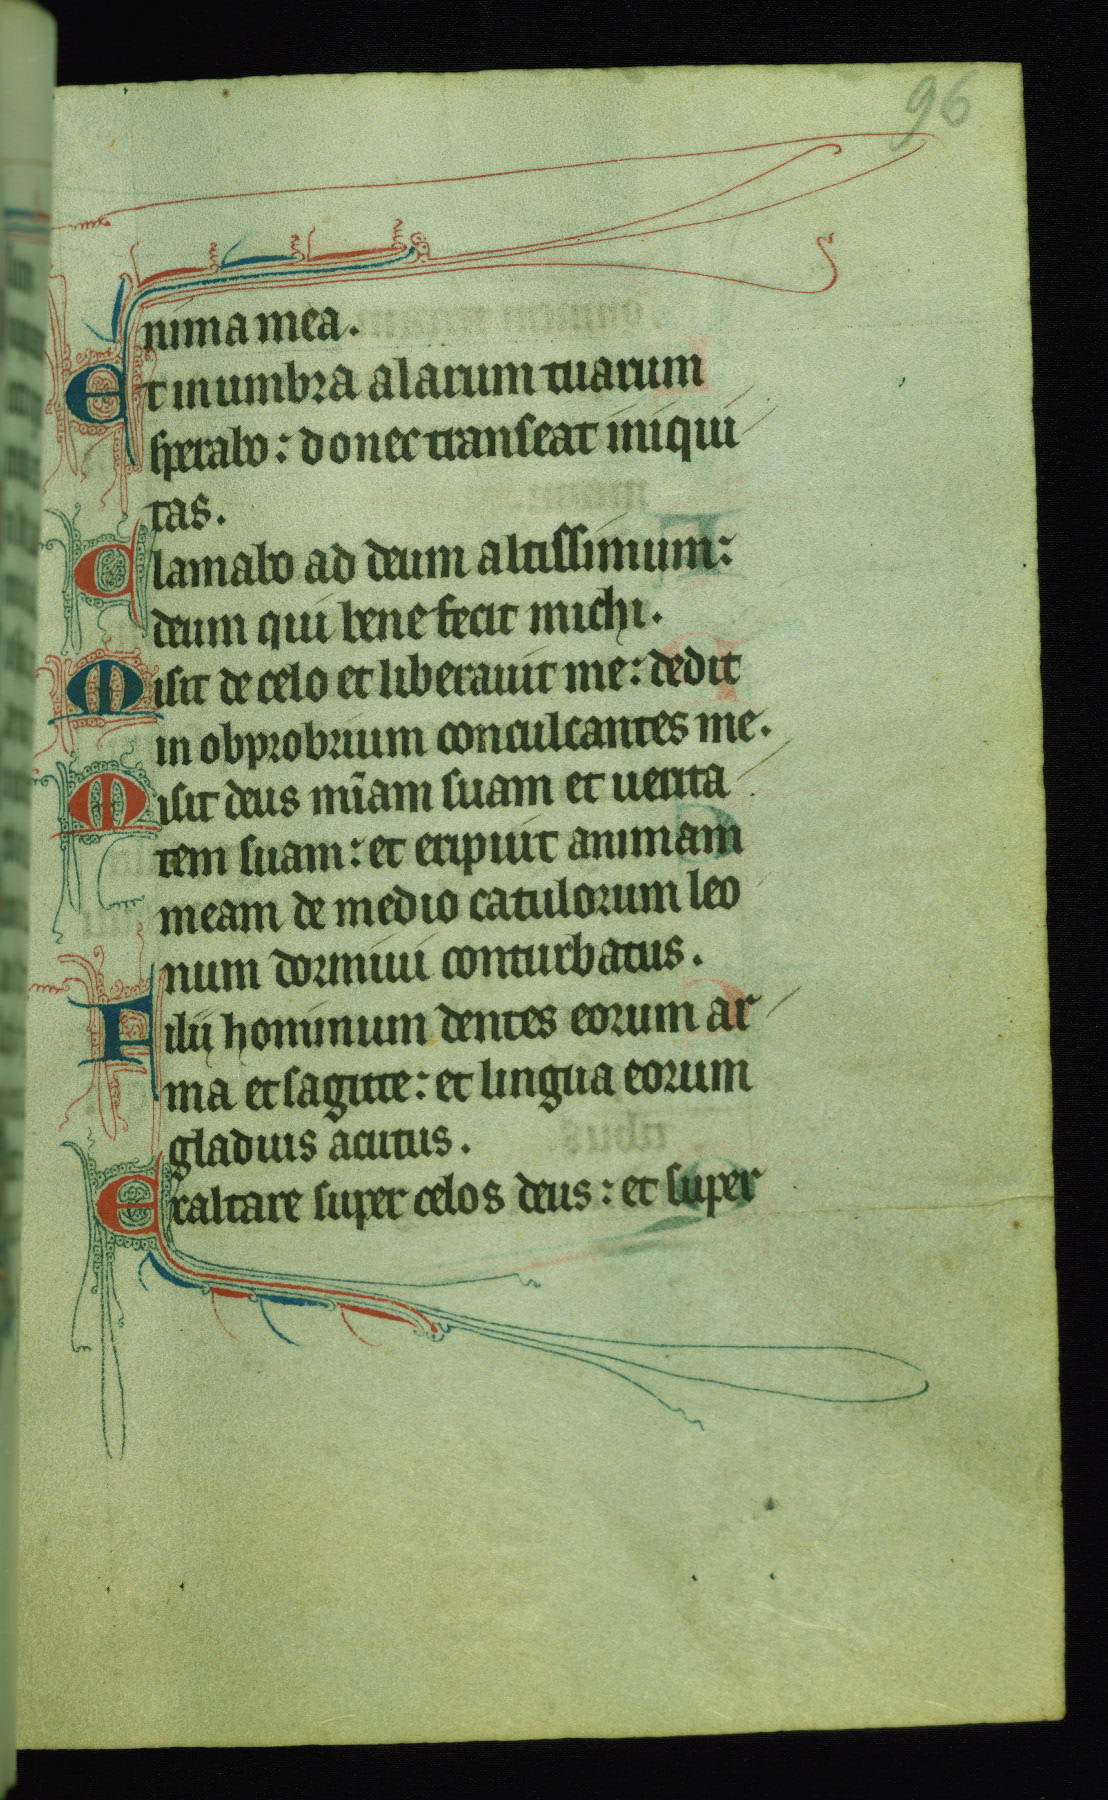 96
nima mea.
Et in umbra alarum tuarum
sperabo: donec transeat iniqui
tas.
Clamabo ad deum altissimum:
deum qui bene fecit michi.
Misit de celo et liberauit me: dedit
in obprobrium conculcantes me.
Misit deus mīam suam et uerita
tem suam: et eripuit animam
meam de medio catulorum leo
num dormiui conturbatus.
Filii hominum dentes eorum ar
ma et sagitte: et lingua eorum
gladius acutus.
Exaltare super celos deus: et super